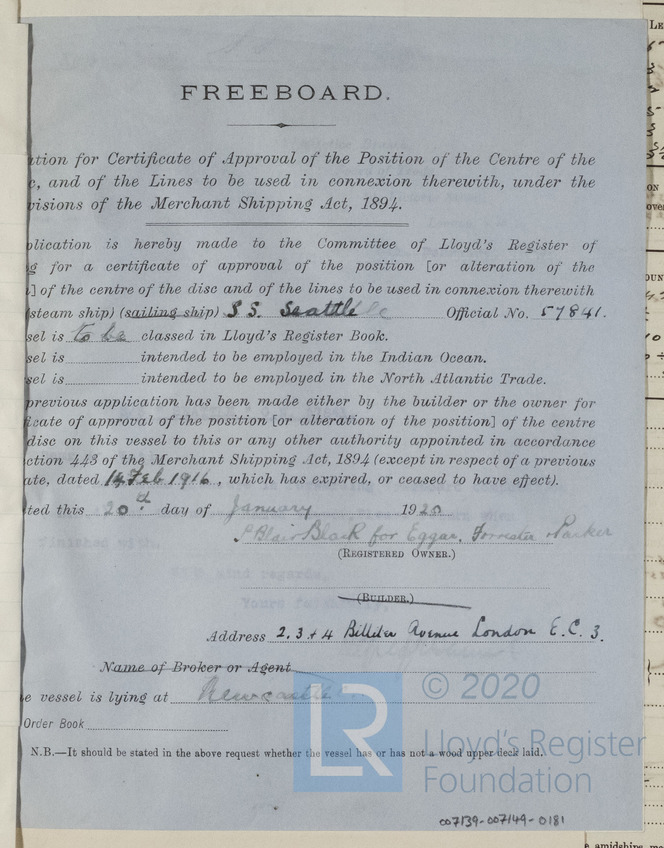 FREEBOARD.
ation for Certificate of Approval of the Position of the Centre of the
c, and of the Lines to be used in connexion therewith, under the
visions of the Merchant Shipping Act, 1894.
plication is hereby made to the Committee of Lloyd's Register of
g for a certificate of approval of the position [or alteration of the
] of the centre of the disc and of the lines to be used in connexion therewith
(steam ship) (sailing ship) S.S. Seattle Official No. 57841.
sel is to be classed in Lloyd's Register Book.
sel is intended to be employed in the Indian Ocean.
sel is intended to be employed in the North Atlantic Trade.
previous application has been made either by the builder or the owner for
ficate of approval of the position [or alteration of the position] of the centre
disc on this vessel to this or any other authority appointed in accordance
ction 443 of the Merchant Shipping Act, 1894 (except in respect of a previous
ate, dated 14 Feb 1916, which has expired, or ceased to have effect).
ted this 20th day of January 1920
Blair Black for Eggar, Forrester & Parker
(REGISTERED OWNER.)
(BUILDER.)
Address 2, 3 & 4 Billiter Avenue London E.C. 3.
Name of Broker or Agent
e vessel is lying at Newcastle
Order Book
N.B.—It should be stated in the above request whether the vessel has or has not a wood upper deck laid.
LR © 2020
Lloyd's Register
Foundation
007139-007149-0181